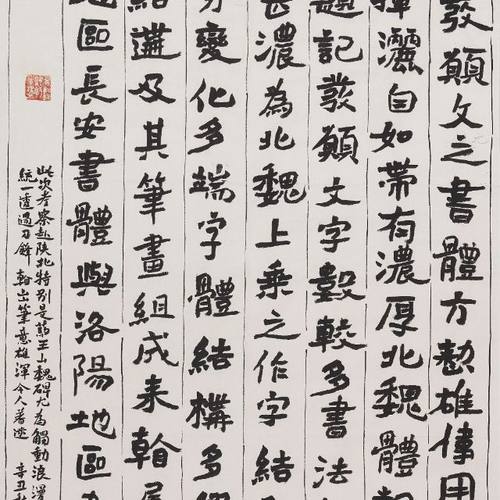 發願文之書體方勁雄用
揮灑自如帶有濃厚北魏體
題記發願文字數較多書法
長濃為北魏上乘之作字結
變化多端字體結構多
結及其筆畫組成來
地區長安書體與洛陽地區
此次考察赴陝北特別是藥王山魏碑尤為觸動浪漫
統一透過刀鋒翰出筆意雄渾令人著迷 辛丑